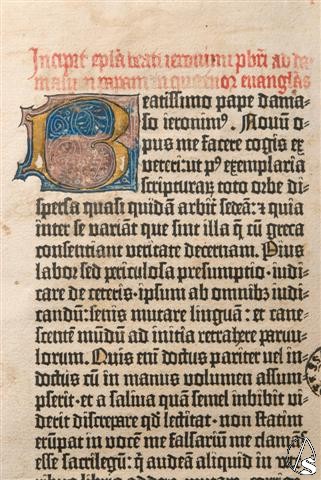 Incipit epl'a beati ieronimi pb'ri ad da-
masum papam in quatuor euangl'as
Beatissimo pape dama-
so ieronimꝰ. Nouū o-
pus me facere cogis ex
veteri: ut pꝰ exemplaria
scripturaꝝ toto orbe di-
spersa quasi quidā arbit' sedeā: ⁊ quia
inter se variāt que sint illa q̄ cū greca
consentiant veritate decernam. Pius
labor sed periculosa presumptio·iudi-
care de ceteris·ipsum ab omnibꝫ iudi-
candū: senis mutare linguā: et cane-
scentē mūdū ad inicia retrahere paruu-
lorum. Quis enī doctus pariter vel in-
doctus cū in manus volumen assum-
pserit·et a saliua quā semel inbibit vi-
derit discrepare qd' lectitat·non statim
erūpat in vocē me falsariū me clamās
esse sacrilegū: q̄ audeā aliquid in